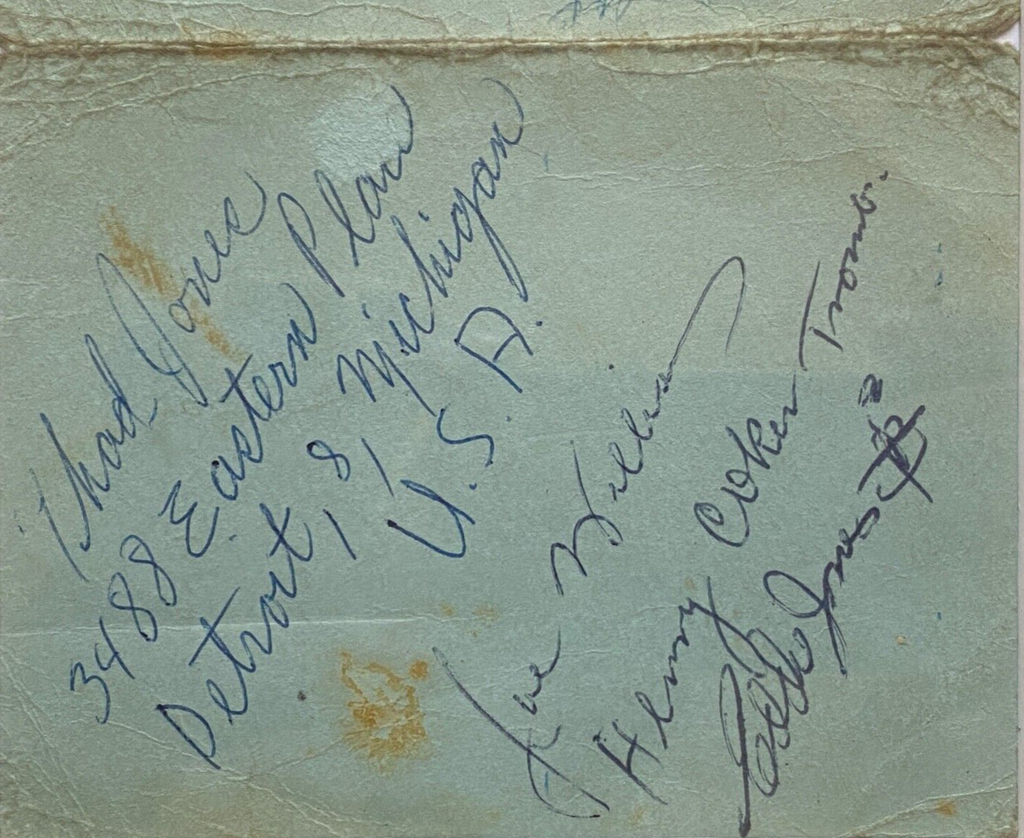 Thad Jones
3488 Eastern Place
Detroit, 8, Michigan
U.S.A.
Joe Williams
Henry Coker Tromb.
Eddie Jones